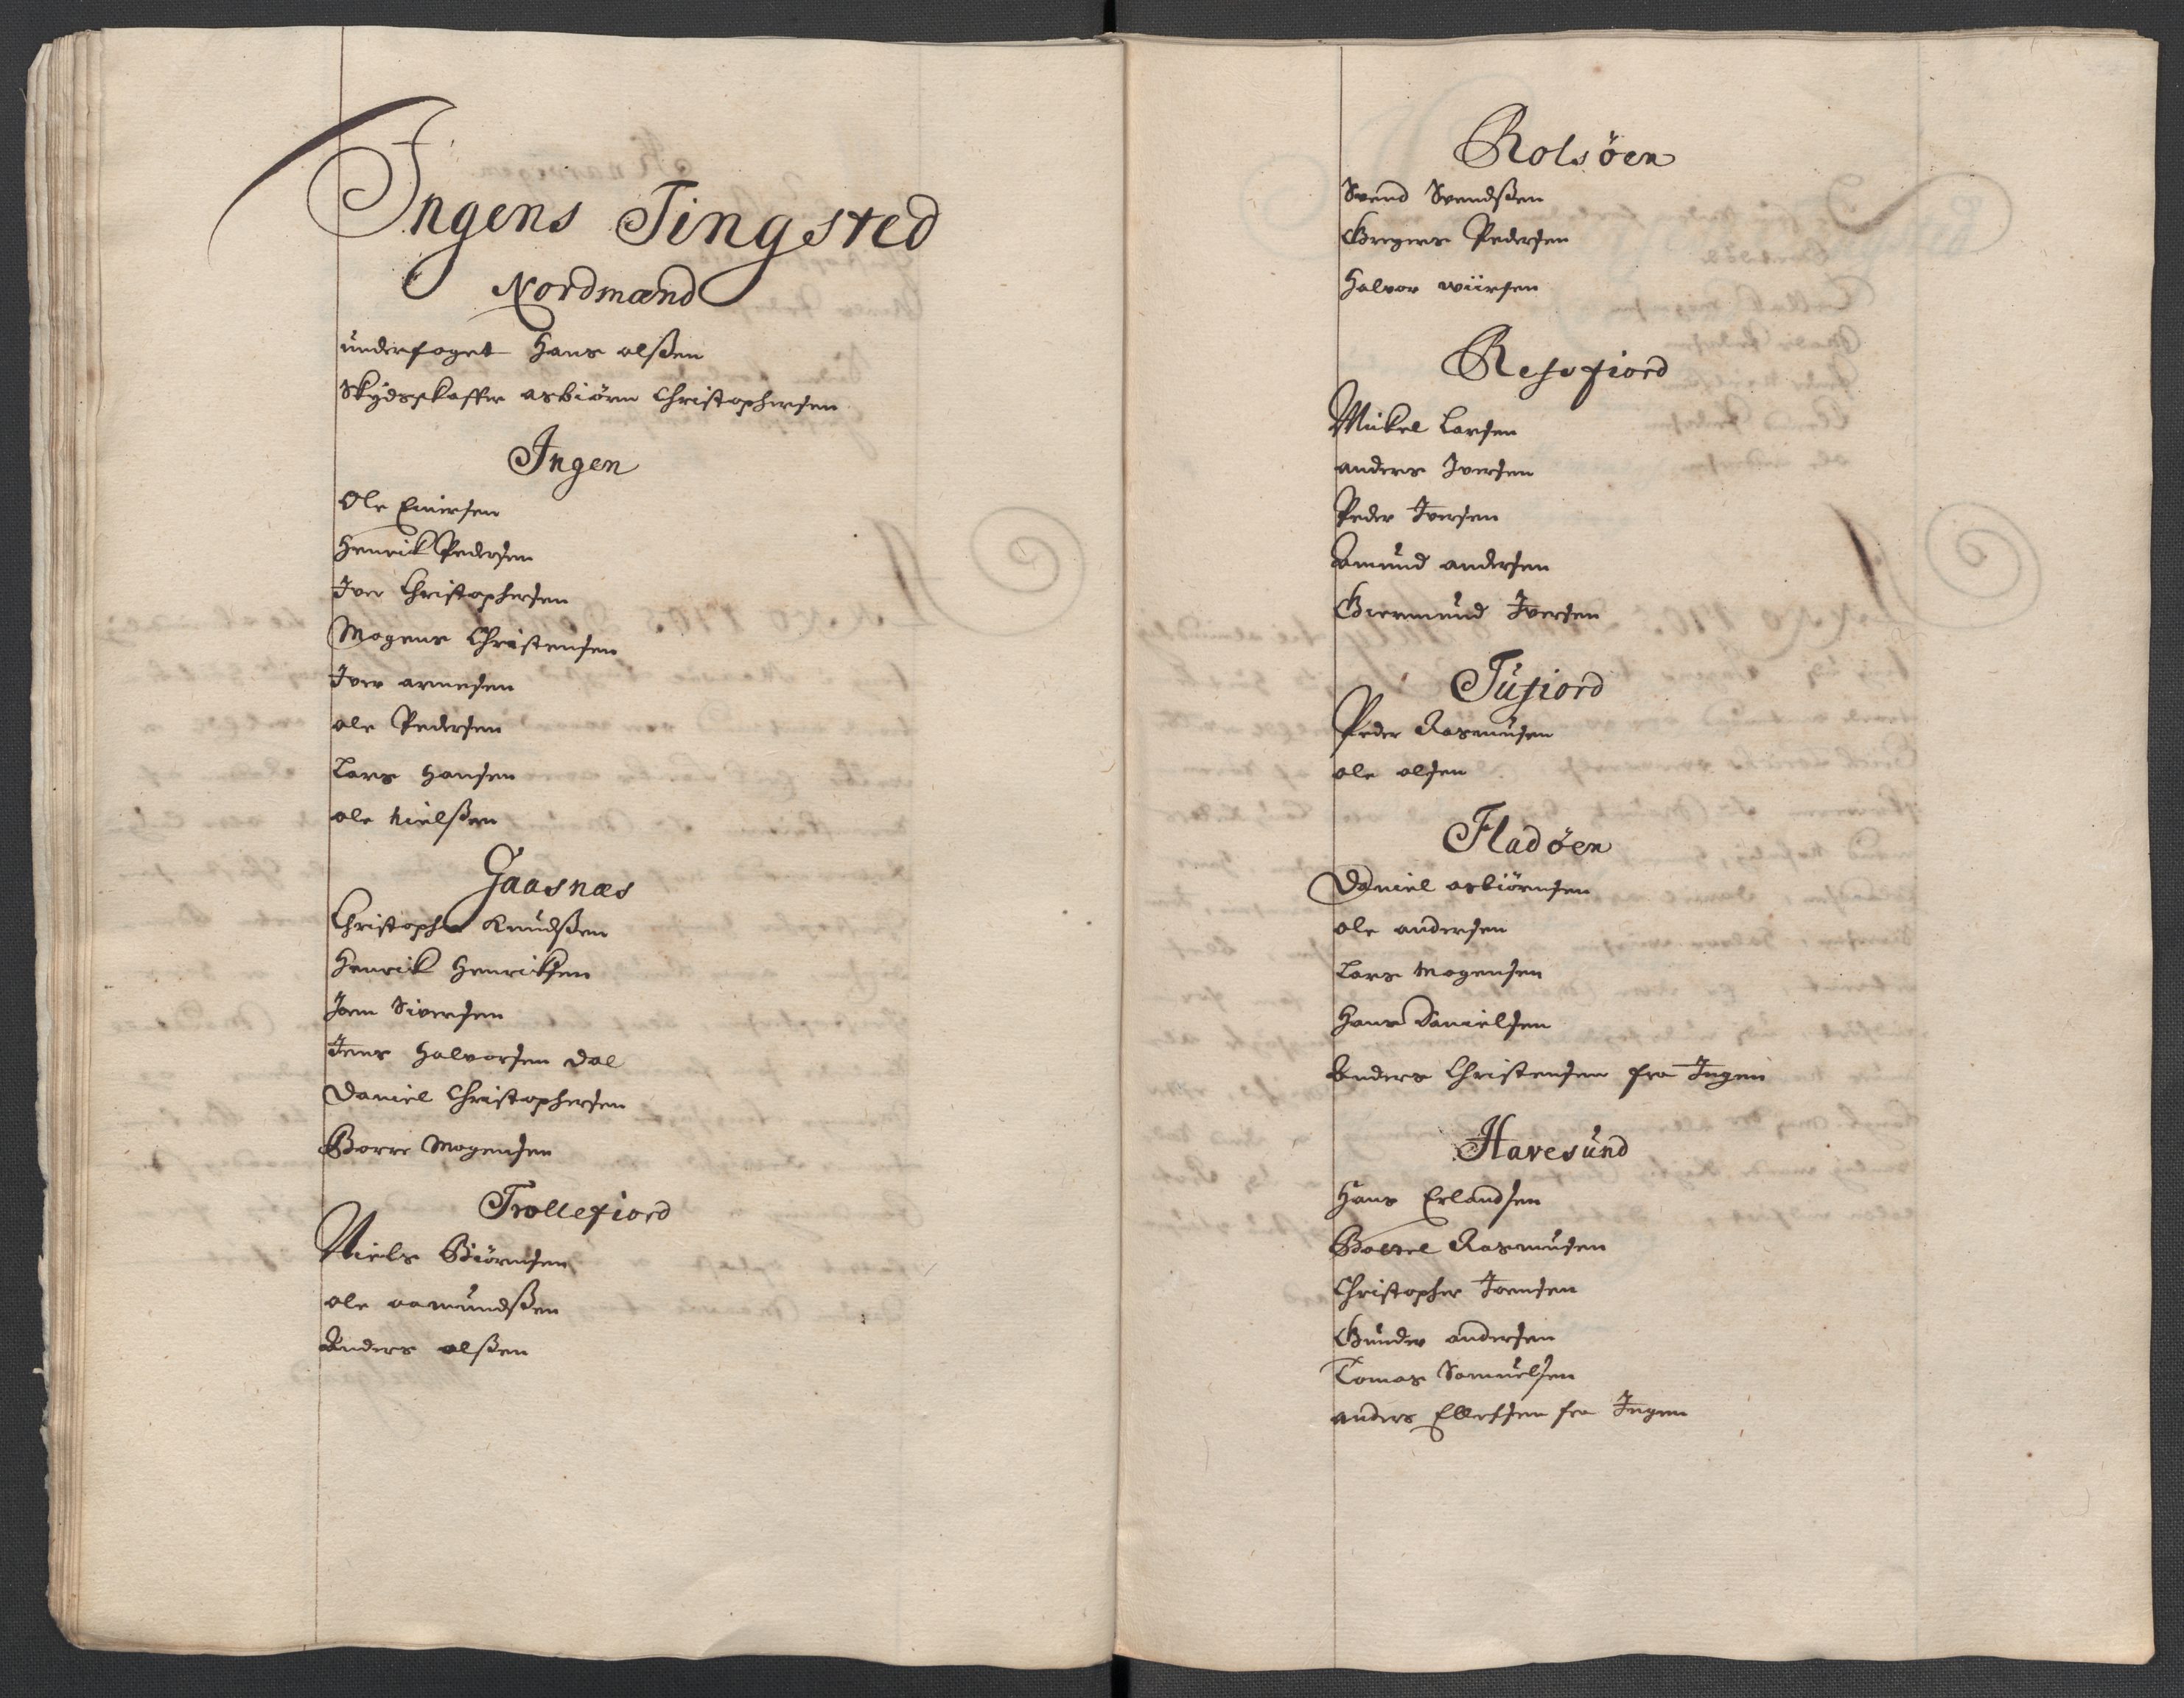 Ingens Tingsted
Nordmænd
underfoget Hans olßen
Skydsskaffer asbiörn Christophersen
Ingen
Ole Einersen
Henrik Pedersen
Iver Christophersen
Mogens Christensen
Iver arnesen
ole Pedersen
Lars Hansen
ole Nielßen
Gaasnæs
Christopher Knudßen
Henrik Henriksen
Joen Siversen
Jens Halvorsen dal
Daniel Christophersen
Borre Mogensen
Trollefiord
Niels Biörnsen
ole aamundßen
Anders olßen
Rolsöen
Svend Svendßen
Gregers Pedersen
Halvor
Refsfiord
Mickel Larsen
anders Iversen
Peder Iversen
Amund andersen
Giermund Iversen
Tufiord
Peder Rasmusen
ole olsen
Fladöen
Daniel asbiörnsen
ole andersen
Lars Mogensen
Hans Danielsen
Anders Christensen fra Ingen
Havesund
Hans Erlandsen
Rasmusen
Christopher Joensen
Gunder andersen
Tomas Samuelsen
anders Ellefsen fra Ingen